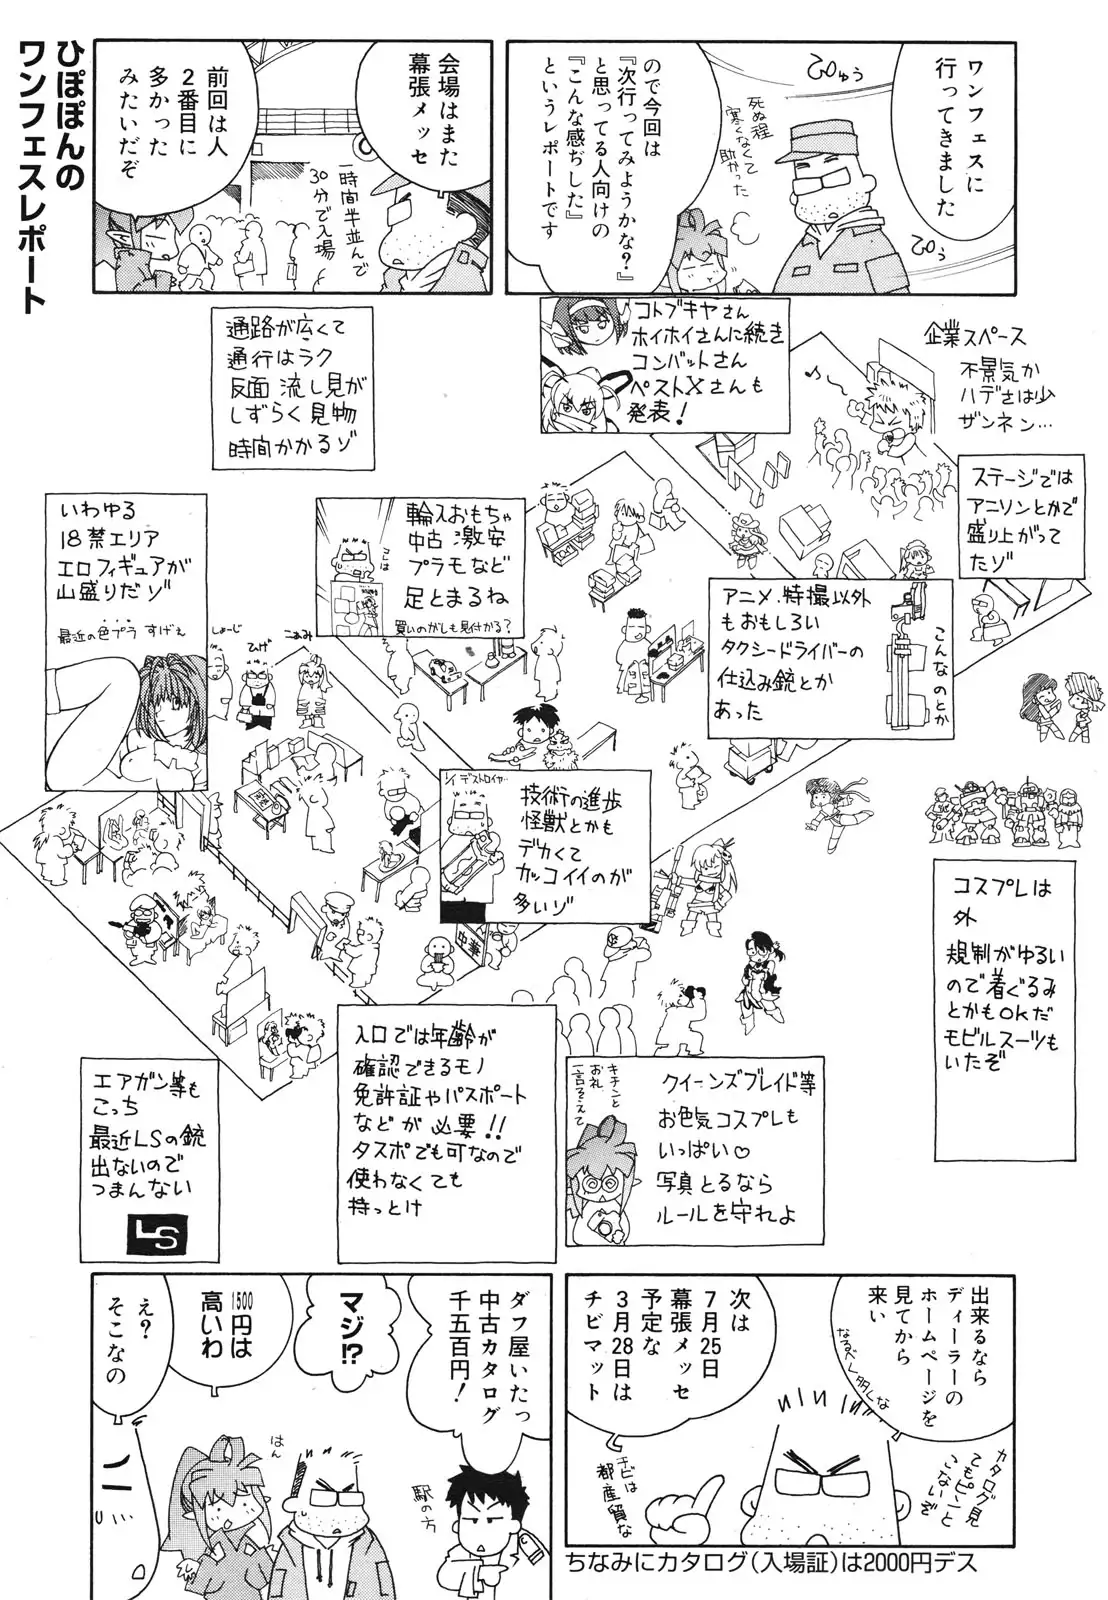 ひぽぽんの
ワンフェスレポート
ワンフェスに
行ってきました
ぴゅう
ぴゅぅ
死ぬ程
寒くなくて
助かった
ので今回は
『次行ってみようかな?』
と思ってる人向けの
『こんな感ぢした』
というレポートです
会場はまた
幕張メッセ
一時間半並んで
30分で入場
前回は人
2番目に
多かった
みたいだぞ
通路が広くて
通行はラク
反面 流し見が
しずらく見物
時間かかるゾ
コトブキヤさん
ホイホイさんに続き
コンバットさん
ペストXさんも
発表!
企業スペース
不景気か
ハデさは少
ザンネン…
ステージでは
アニソンとかで
盛り上がって
たゾ
いわゆる
18禁エリア
エロフィギュアが
山盛りだゾ
最近の色プラ すげぇ
しょーじ
ひげ
こあみ
輸入おもちゃ
中古 激安
プラモなど
足とまるね
買いのがしも見付かる?
コレは
アニメ、特撮以外
もおもしろい
タクシードライバーの
仕込み銃とか
あった
こんなのとか
1/1 デストロイヤー…
技術の進歩
怪獣とかも
デカくて
カッコイイのが
多いゾ
中華
コスプレは
外
規制がゆるい
ので着ぐるみ
とかもOKだ
モビルスーツも
いたぞ
エアガン等も
こっち
最近LSの銃
出ないので
つまんない
LS
入口では年齢が
確認できるモノ
免許証やパスポート
などが 必要!!
タスポでも可なので
使わなくても
持っとけ
キチンと
お礼
一言そえて
クイーンズブレイド等
お色気コスプレも
いっぱい♡
写真とるなら
ルールを守れよ
出来るなら
ディーラーの
ホームページを
見てから
来い
なるべく多くな
カタログ見
てもピンと
こないぞ
次は
7月25日
幕張メッセ
予定な
3月28日は
チビマット
チビは
都産貿な
ちなみにカタログ(入場証)は2000円デス
ダフ屋いたっ
中古カタログ
千五百円!
駅の方
マジ!?
1500円は
高いわ
はん
え?
そこなの